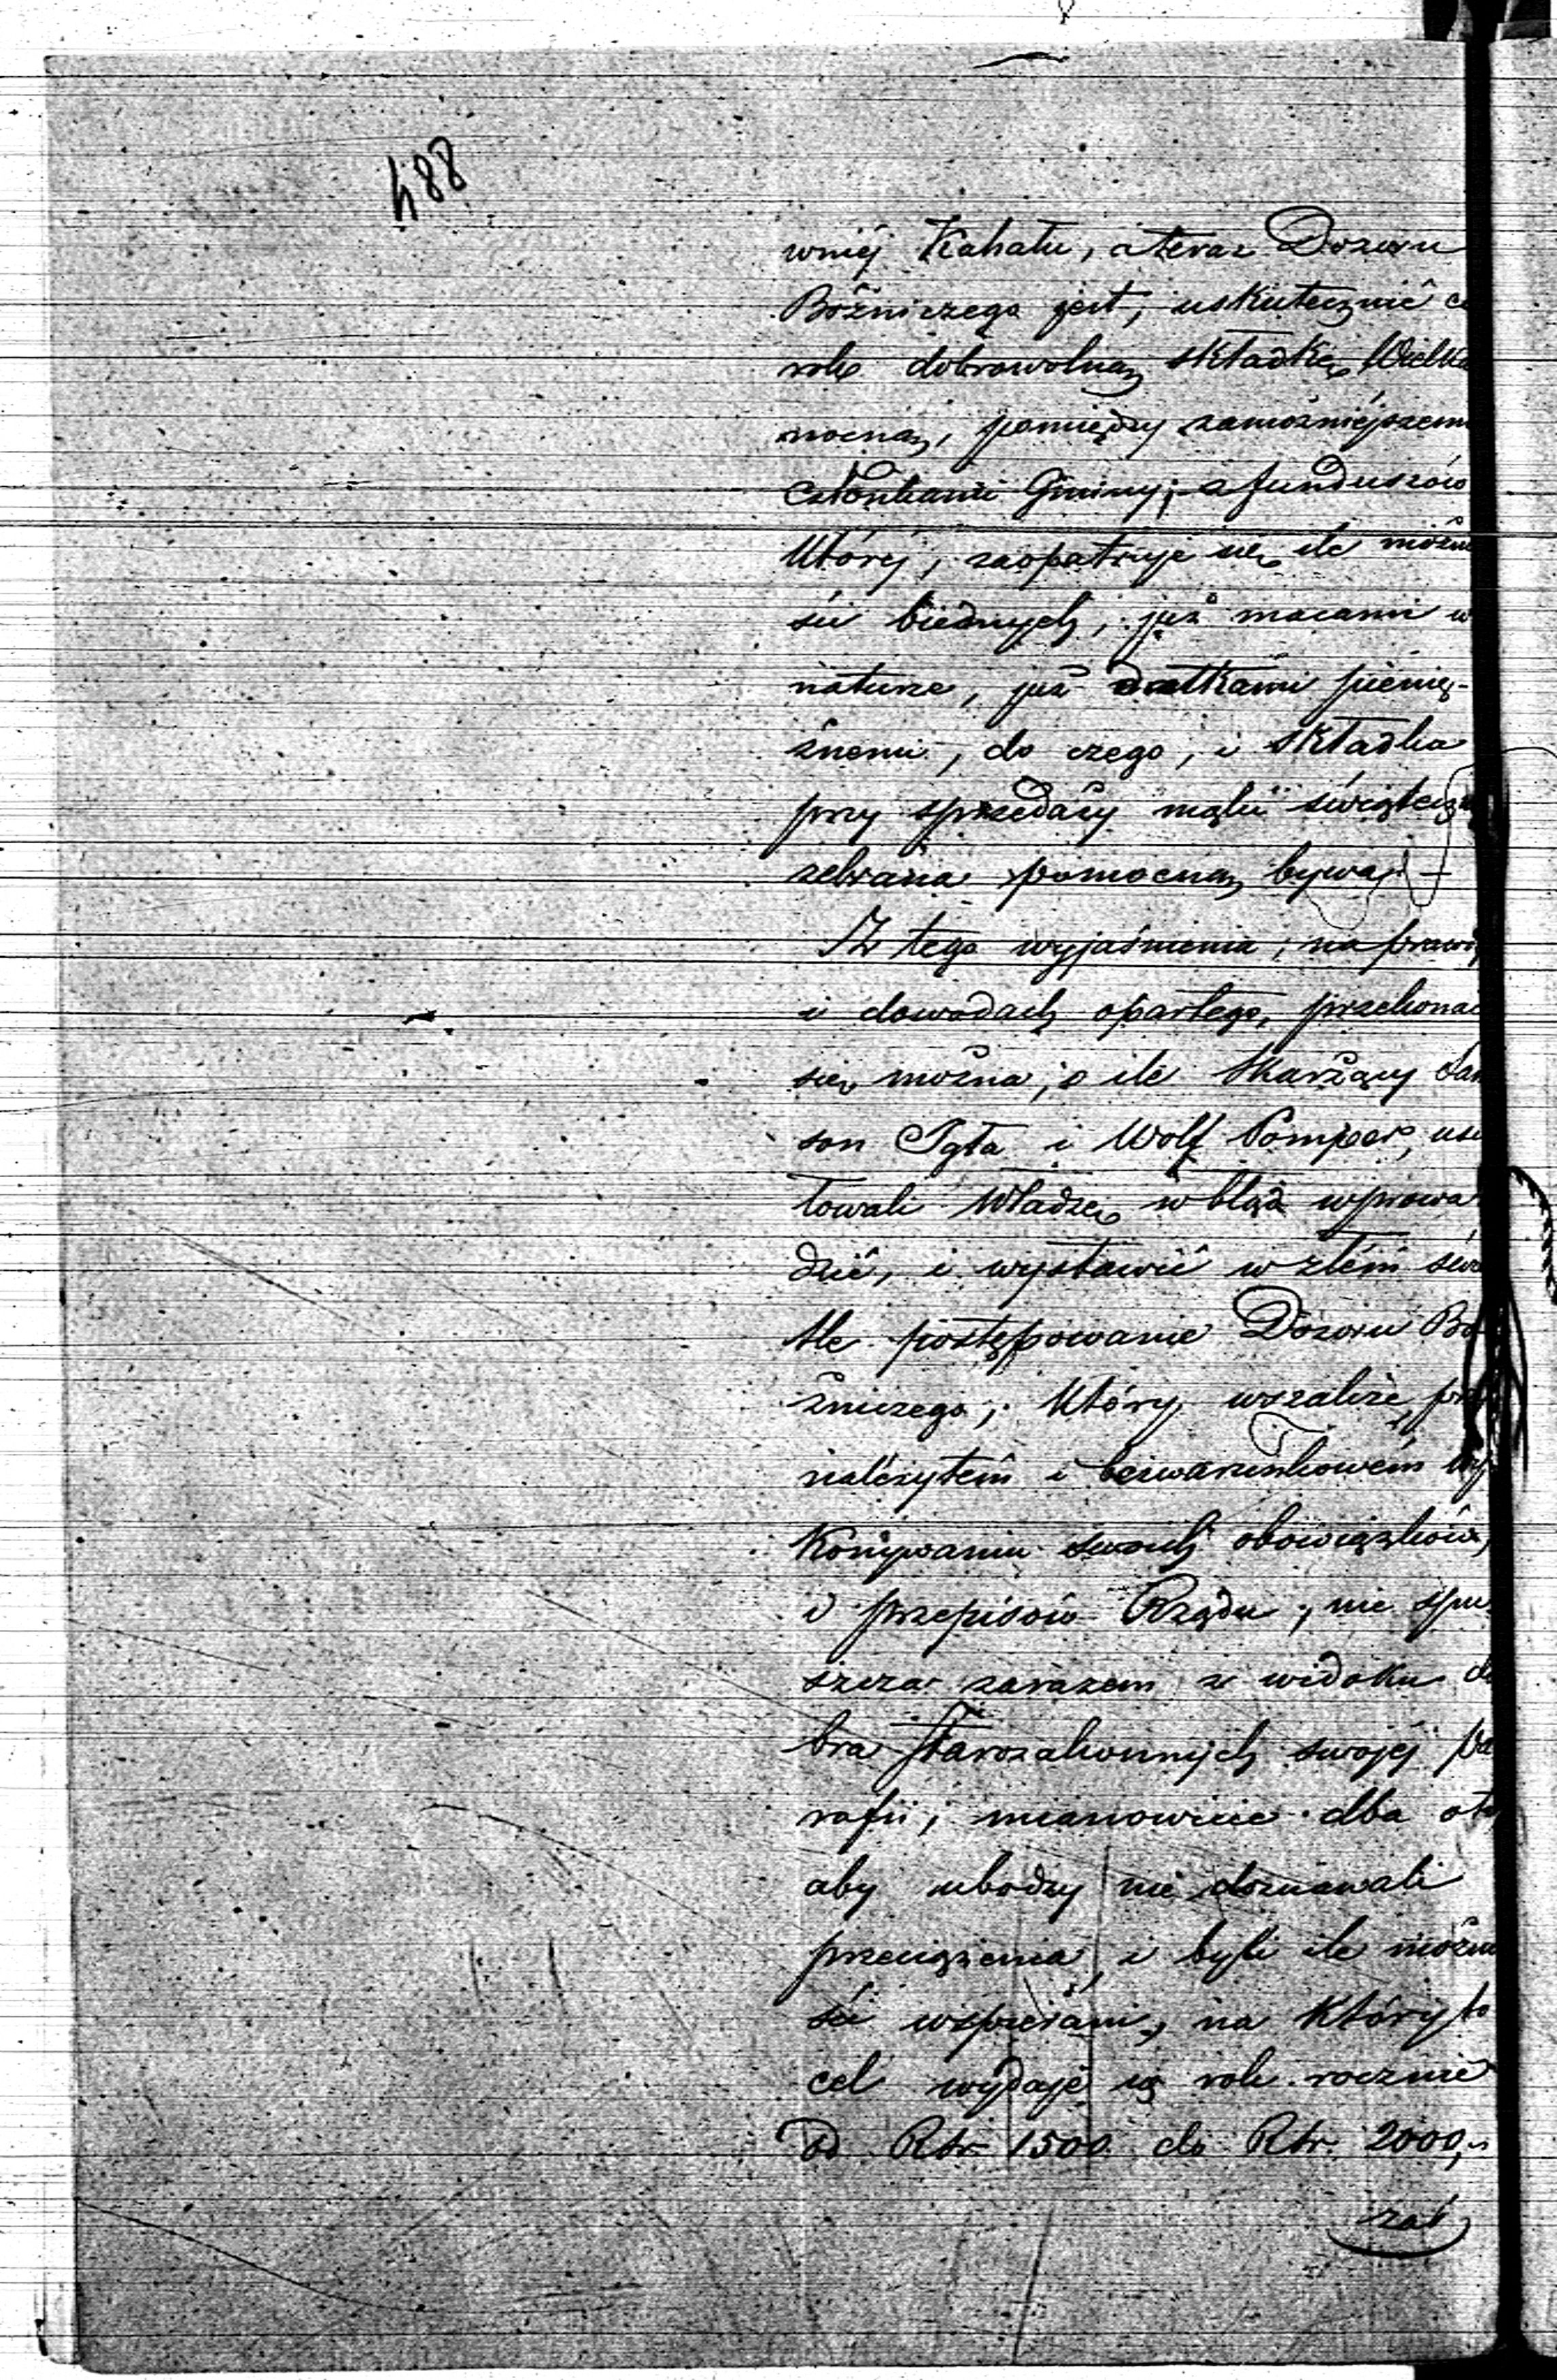 488
wniéj Kahału, a teraz Dozoru
Bóżniczego jest, uskutecznić co
rok dobrowolną składkę Wielka
nocną, pomiędzy zamożniéjszemi
członkami Gminy; z funduszów
któréj, zaopatruje się ile możno
ści biednych, już macami w
naturze, już datkami pienię-
żnemi, do czego, i składka
przy sprzedaży mąki świątecz
zebrana pomocną bywa. –
Z tego wyjaśnienia, na praw
i dowodach opartego, przekonać
się można, o ile skarżący Sam
son Igła i Wolf Pomper, usi
łowali Władzę w błąd wprowa
dzić, i wystawić w złém świe
tle postępowanie Dozoru Bó
żniczego, który wszakże, przy
należytém i bezwarunkowém wy
konywaniu swoich obowiązków,
i przepisów Rządu, nie spu
szcza zarazem z widoku do
bra starozakonnych swojéj pa
rafii, mianowicie dba oto
aby ubodzy nie doznawali
przeciążenia, i byli ile możno
ści wspierani, na który to
cel wydaje się rok rocznie
od Rbr 1500 do Rbr. 2000,
zaś